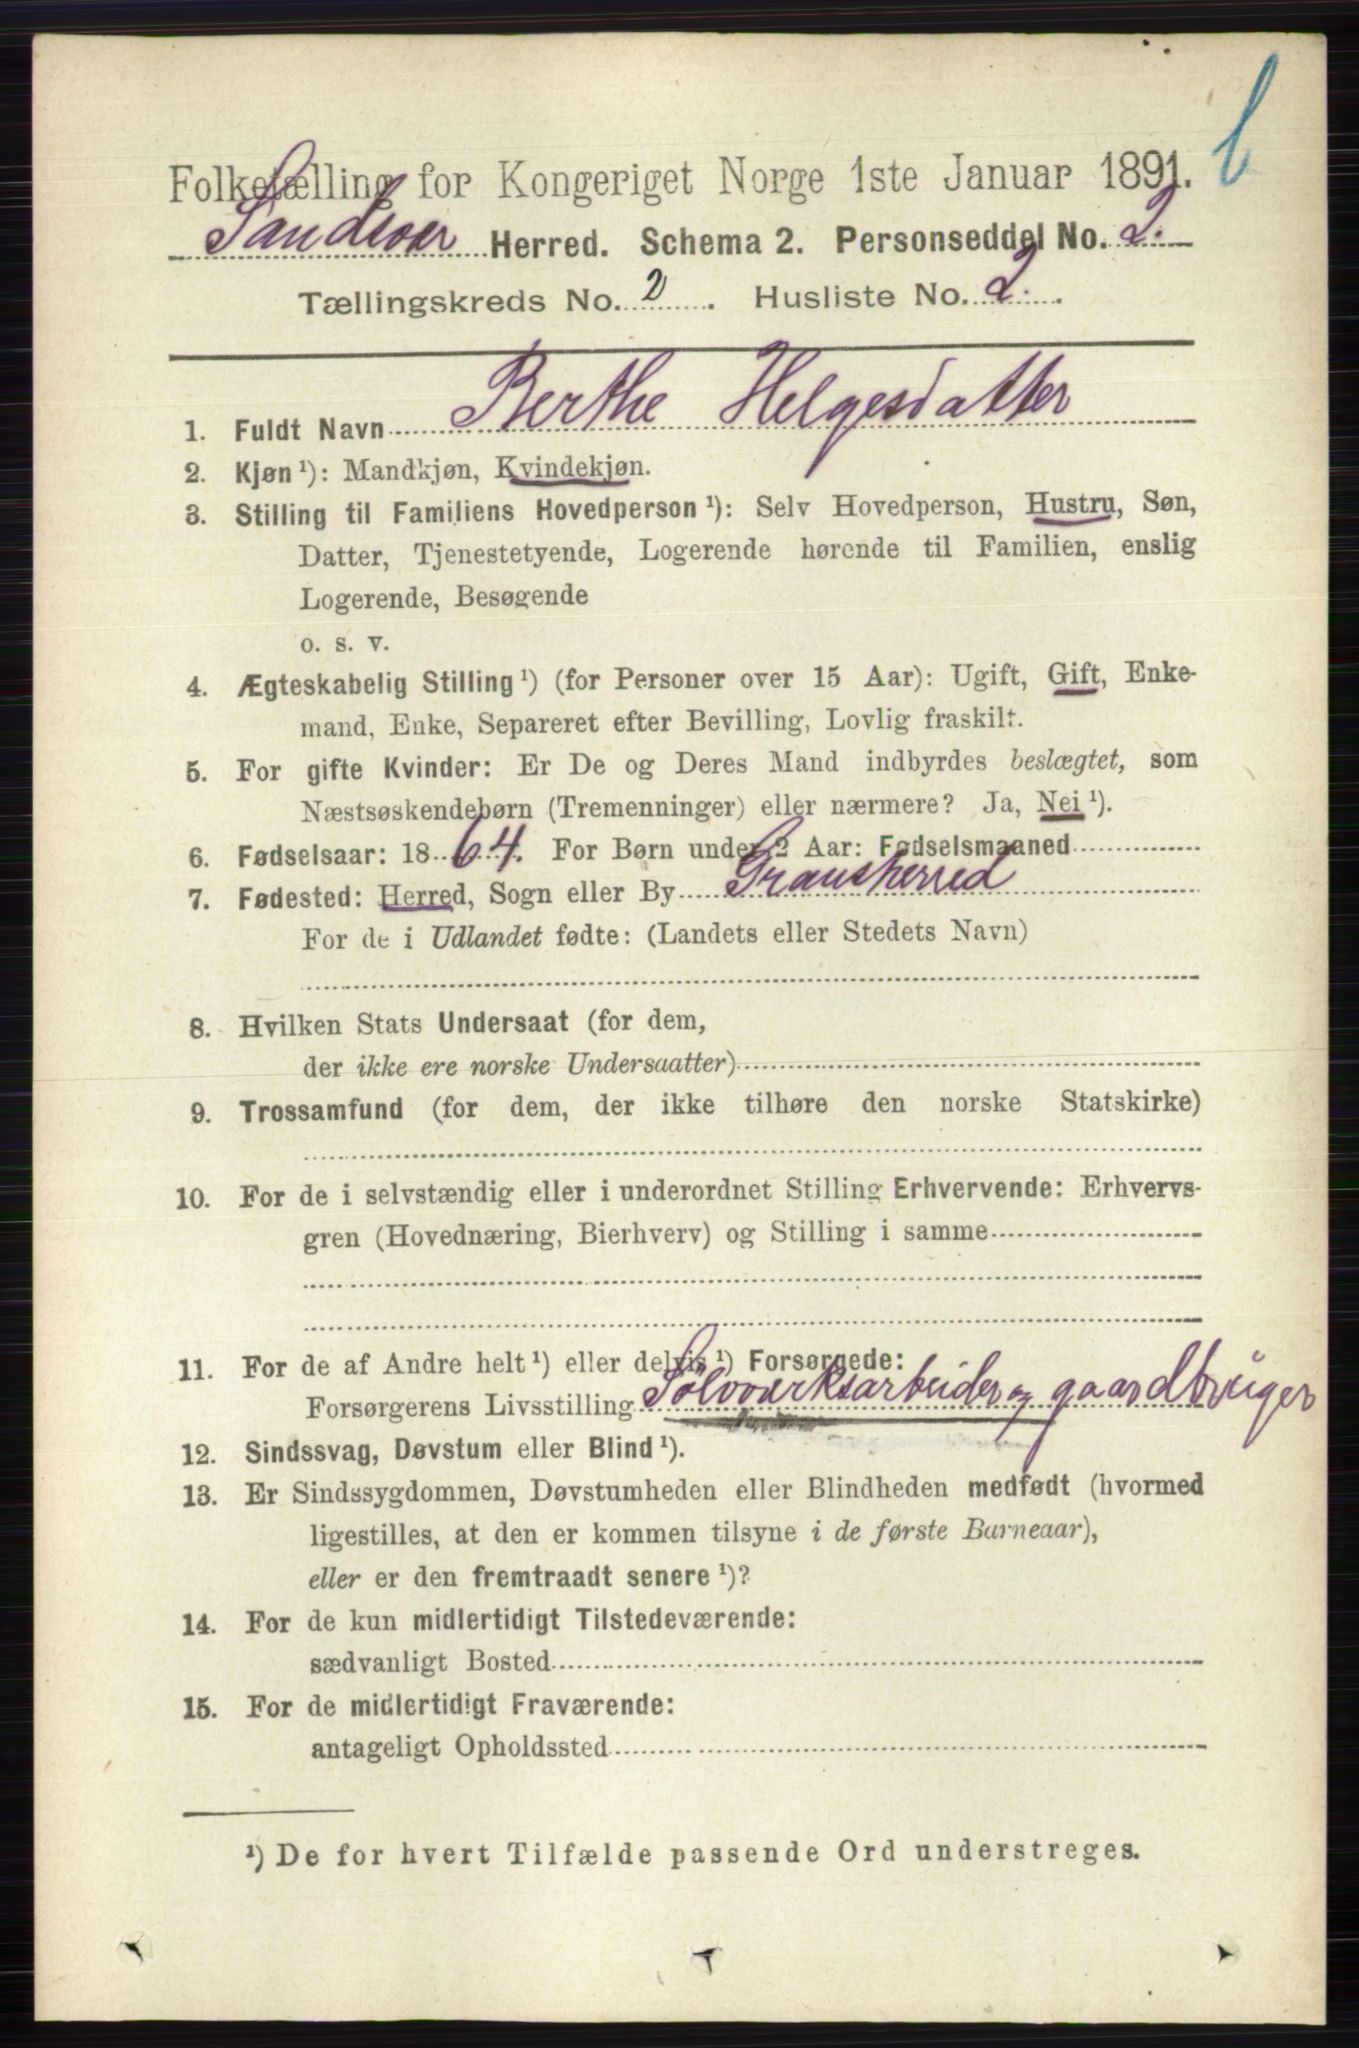 b
Folketælling for Kongeriget Norge 1ste Januar 1891.
Sandsvær Herred. Schema 2. Personseddel No. 2.
Tællingskreds No. 2. Husliste No. 2.
1. Fuldt Navn Berthe Helgesdatter
2. Kjøn ¹): Mandkjøn, Kvindekjøn.
3. Stilling til Familiens Hovedperson ¹): Selv Hovedperson, Hustru, Søn,
Datter, Tjenestetyende, Logerende hørende til Familien, enslig
Logerende, Besøgende
o. s. v.
4. Ægteskabelig Stilling ¹) (for Personer over 15 Aar): Ugift, Gift, Enke-
mand, Enke, Separeret efter Bevilling, Lovlig fraskilt.
5. For gifte Kvinder: Er De og Deres Mand indbyrdes beslægtet, som
Næstsøskendebørn (Tremenninger) eller nærmere? Ja, Nei ¹).
6. Fødselsaar: 1864. For Børn under 2 Aar: Fødselsmaaned
7. Fødested: Herred, Sogn eller By Gransherred
For de i Udlandet fødte: (Landets eller Stedets Navn)
8. Hvilken Stats Undersaat (for dem,
der ikke ere norske Undersaatter)
9. Trossamfund (for dem, der ikke tilhøre den norske Statskirke)
10. For de i selvstændig eller i underordnet Stilling Erhvervende: Erhvervs-
gren (Hovednæring, Bierhverv) og Stilling i samme
11. For de af Andre helt ¹) eller delvis ¹) Forsørgede:
Forsørgerens Livsstilling Sölvværksarbeider og gaardbruger
12. Sindssvag, Døvstum eller Blind ¹).
13. Er Sindssygdommen, Døvstumheden eller Blindheden medfødt (hvormed
ligestilles, at den er kommen tilsyne i de første Barneaar),
eller er den fremtraadt senere ¹)?
14. For de kun midlertidigt Tilstedeværende:
sædvanligt Bosted
15. For de midlertidigt Fraværende:
antageligt Opholdssted
¹) De for hvert Tilfælde passende Ord understreges.